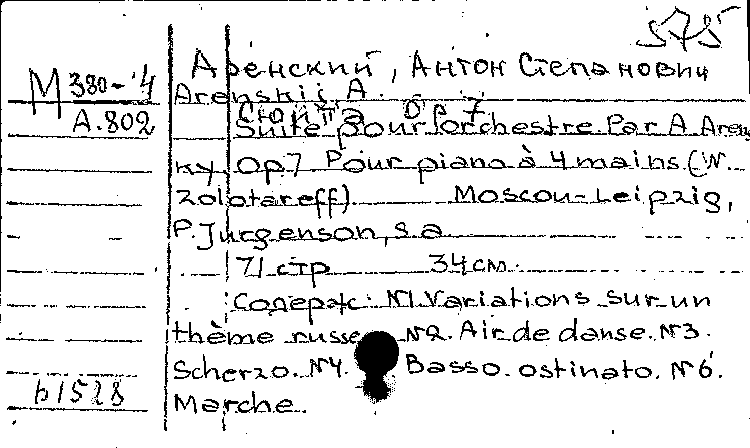 575
М 380-4
А.802
Аренский, Антон Степанович
Arenskij A.
Сюита Op 7
Suite pour orchestre. Par A. Arens
ky. Op7 Pour piano à 4 mains. (W.
Zolotareff). Moscou-Leipzig,
P. Jurgenson, s a
71 стр 34 см.
Содерж: №1. Variations sur un
thème russe №2. Air de danse. №3.
Scherzo. №4. Basso ostinato. №6.
Marche.
b1528